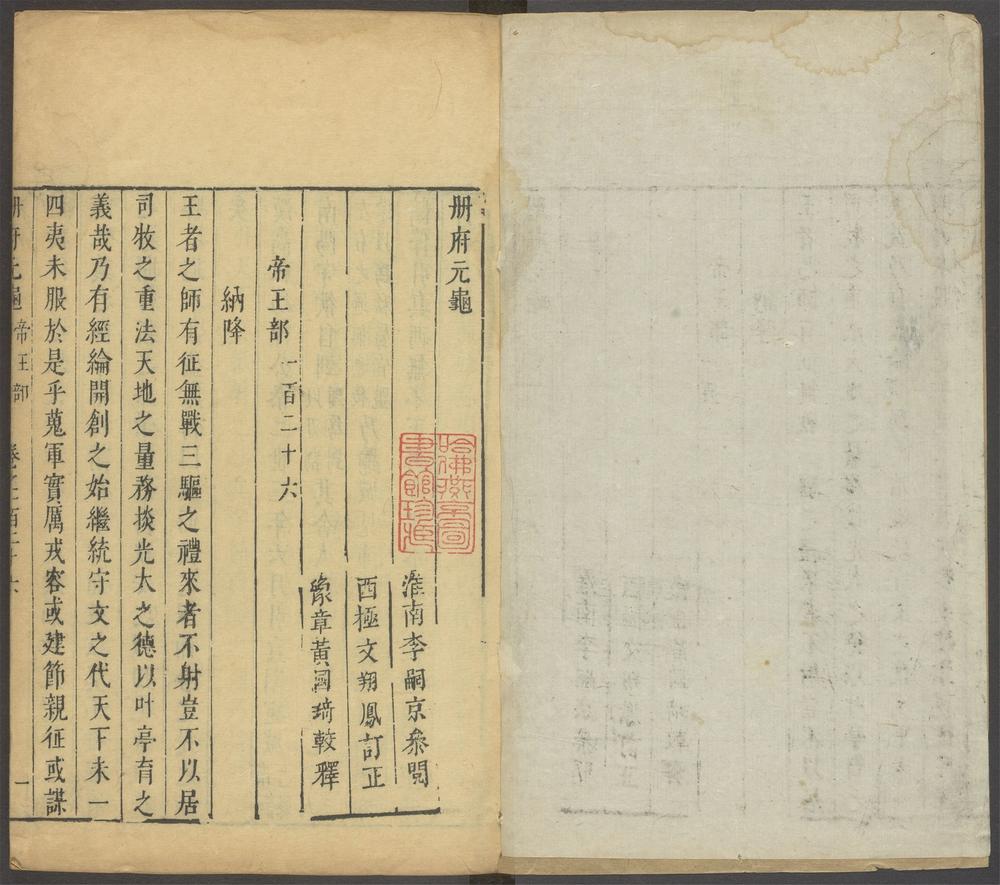 册府元龜
淮南李嗣京叅閱
西極文翔鳳訂正
豫章黃國琦較釋
帝王部一百二十六
納降
王者之師有征無戰三驅之禮來者不射豈不以居
司牧之重法天地之量務掞光大之德以叶亭育之
義哉乃有經綸開創之始繼統守文之代天下未一
四夷未服於是乎蒐軍實厲戎容或建節親征或謀
册府元龜 帝王部 一
哈佛燕京圖書館珍藏